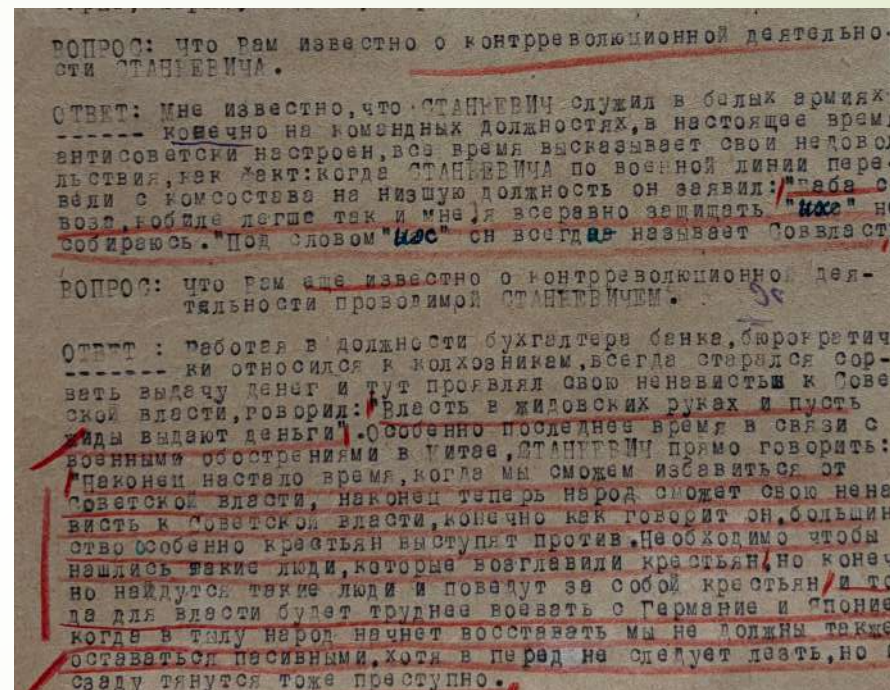 ВОПРОС: Что Вам известно о контрреволюционной деятельно-
сти СТАНКЕВИЧА.
ОТВЕТ: Мне известно,что СТАНКЕВИЧ служил в белых армиях
------ конечно на командных должностях,в настоящее врем
антисоветски настроен,все время высказывает свои недовол
льствия,как факт:когда СТАНКЕВИЧА по военной линии пере
вели с комсостава на низшую должность он заявил:"Баба с
воза,кобиле легше так и мне,я всеравно защищать "ихс" не
собираюсь."Под словом"ихс" он всегда называет Соввласт
ВОПРОС: Что Вам еще известно о контрреволюционной дея-
тяльности проводимой СТАНКЕВИЧЕМ.
ОТВЕТ : Работая в должности бухгалтера банка,бюрократич
------- ки относился к колхозникам,всегда старался сор-
вать выдачу денег и тут проявлял свою ненависть к Сове
ской власти,говорил:"Власть в жидовских руках и пусть
жиды выдают деньги".Особенно последнее время в связи с
военными обострениями в Китае,СТАНКЕВИЧ прямо говорить:
"Наконец настало время,когда мы сможем избавиться от
Советской власти, наконец теперь народ сможет свою нена
висть к Советской власти,конечно как говорит он,большин
ство особенно крестьян выступят против.Необходимо чтобы
нашлись такие люди,которые возглавили крестьян,но конеч
но найдутся такие люди и поведут за собой крестьян,и то
да для власти будет труднее воевать с Германие и Японие
когда в тылу народ начнет восставать мы не должны также
оставаться пасивными,хотя в перед не следует лезть,но и
сзаду тянутся тоже преступно.